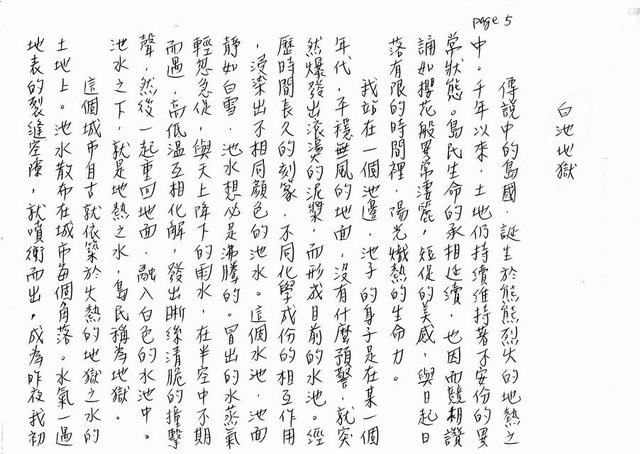 page 5
白池地獄
傳說中的島國，誕生於熊熊烈火的地熱之
中。千年以來，土地仍持續維持著不安份的異
常狀態。島民生命的承相延續，也因而競相讚
誦如櫻花般異常淒麗，短促的美感，與日起日
落有限的時間裡，陽光熾熱的生命力。
我站在一個池邊，池子的身子是在某一個
年代，平穩無風的地面，沒有什麼預警，就突
然爆發出滾燙的泥漿，而形成目前的水池。經
歷時間長久的刻家，不同化學成份的相互作用
，浸染出不相同顏色的水池。這個水池，池面
靜如白雪，池水想必是沸騰的。冒出的水蒸氣
輕忽急促，與天上降下的雨水，在半空中不期
而遇，高低溫互相化解，發出晰絲清脆的撞擊
聲，然後一起重回地面，融入白色的水池中。
池水之下，就是地熱之水，島民稱為地獄。
這個城市自古就依築於火熱的地獄之水的
土地上。池水散布在城市每個角落。水氣一遇
地表的裂縫空隙，就噴衝而出，成為昨夜我初